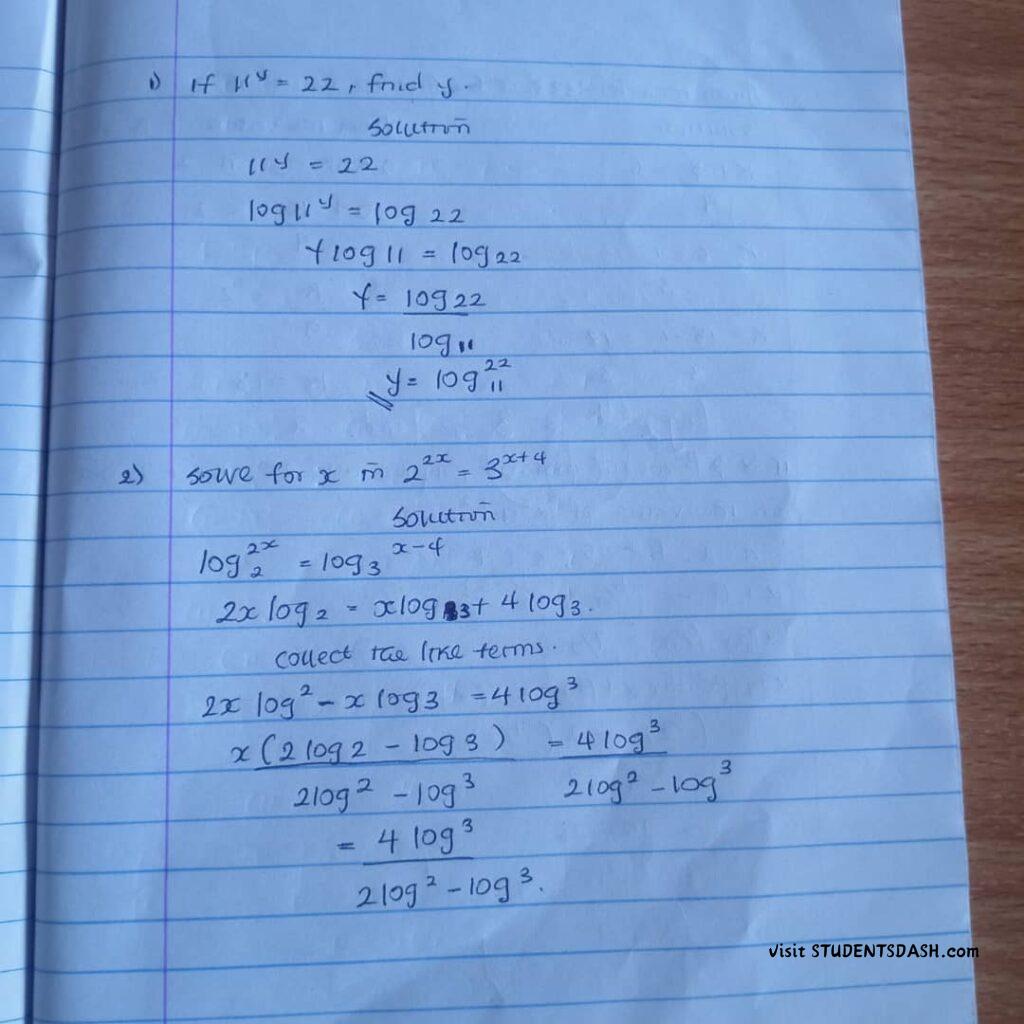 1) If 11^y = 22, find y.
Solution
11^y = 22
log 11^y = log 22
Y log 11 = log 22
Y = log 22
log 11
y = log 22 11
2) Solve for x in 2^2x = 3^x+4
Solution
log 2^2x = log 3^x-4
2x log 2 = x log 3 + 4 log 3.
Collect the like terms.
2x log 2 - x log 3 = 4 log 3
x (2 log 2 - log 3) = 4 log 3
2 log 2 - log 3 2 log 2 - log 3
= 4 log 3
2 log 2 - log 3.
visit STUDENTSDASH.com